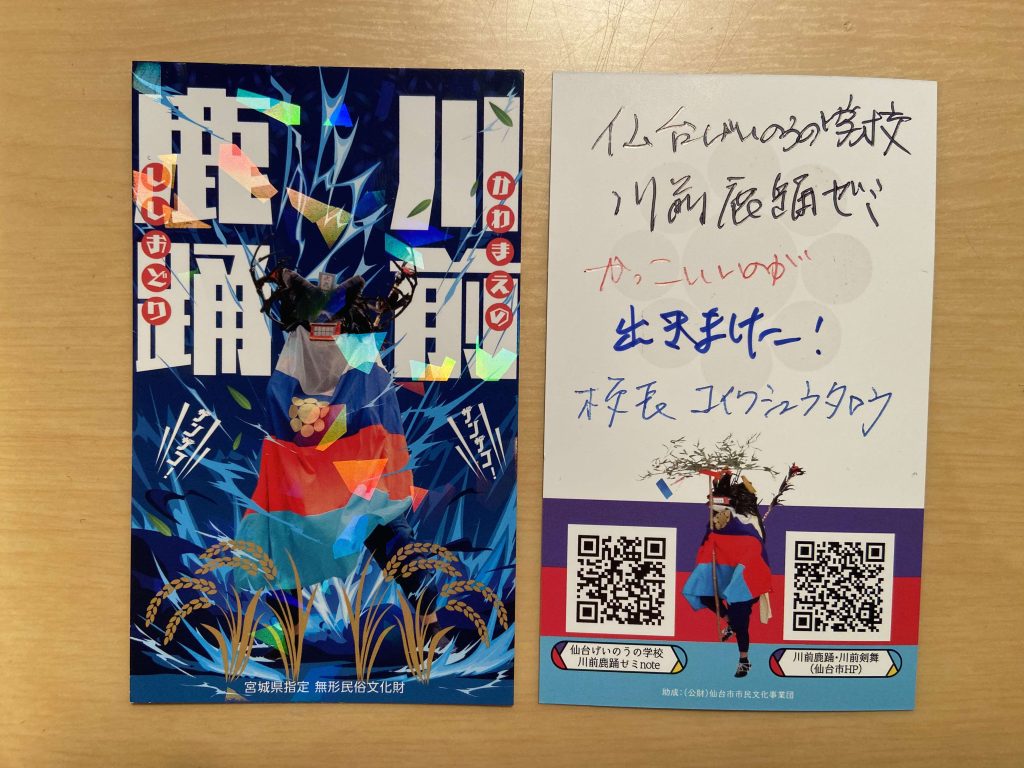 川前
かわまえの
鹿踊
ししおどり
ザンザコ!
ザンザコ!
宮城県指定 無形民俗文化財
仙台げいのうの学校
川前鹿踊ゼミ
かっこいいのが
出来ました!
校長 コイワシュウタロウ
仙台げいのうの学校
川前鹿踊ゼミnote
川前鹿踊・川前剣舞
(仙台市HP)
助成:(公財)仙台市市民文化事業団